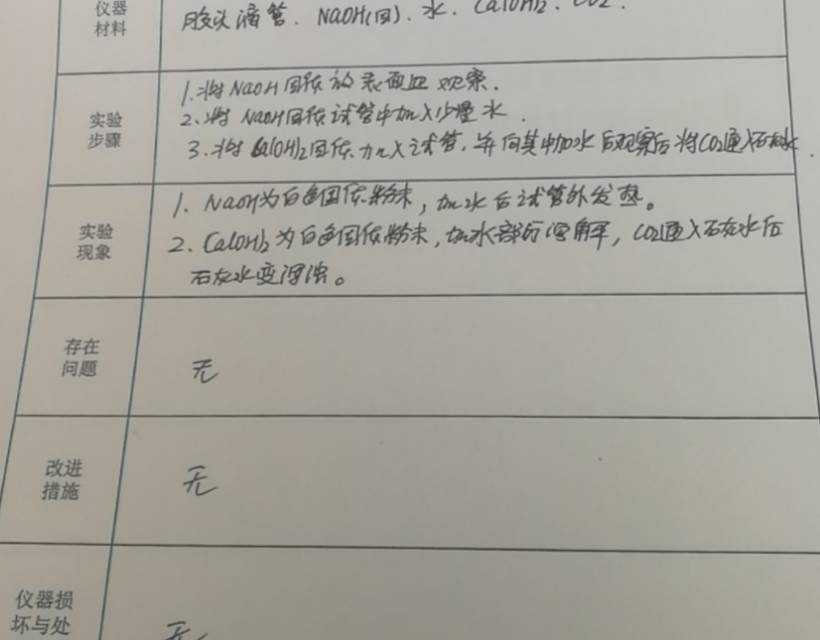 仪器
材料
胶头滴管、NaOH(固)、水、Ca(OH)2、CO2.
实验
步骤
1.将NaOH固体放表面皿观察.
2.将NaOH固体试管中加入少量水.
3.将Ca(OH)2固体加入试管,并向其中加水后观察后将CO2通入石灰水.
实验
现象
1.NaOH为白色固体粉末,加水后试管外发热。
2.Ca(OH)2为白色固体粉末,加水部分溶解,CO2通入石灰水后
石灰水变浑浊。
存在
问题
无
改进
措施
无
仪器损
坏与处
无